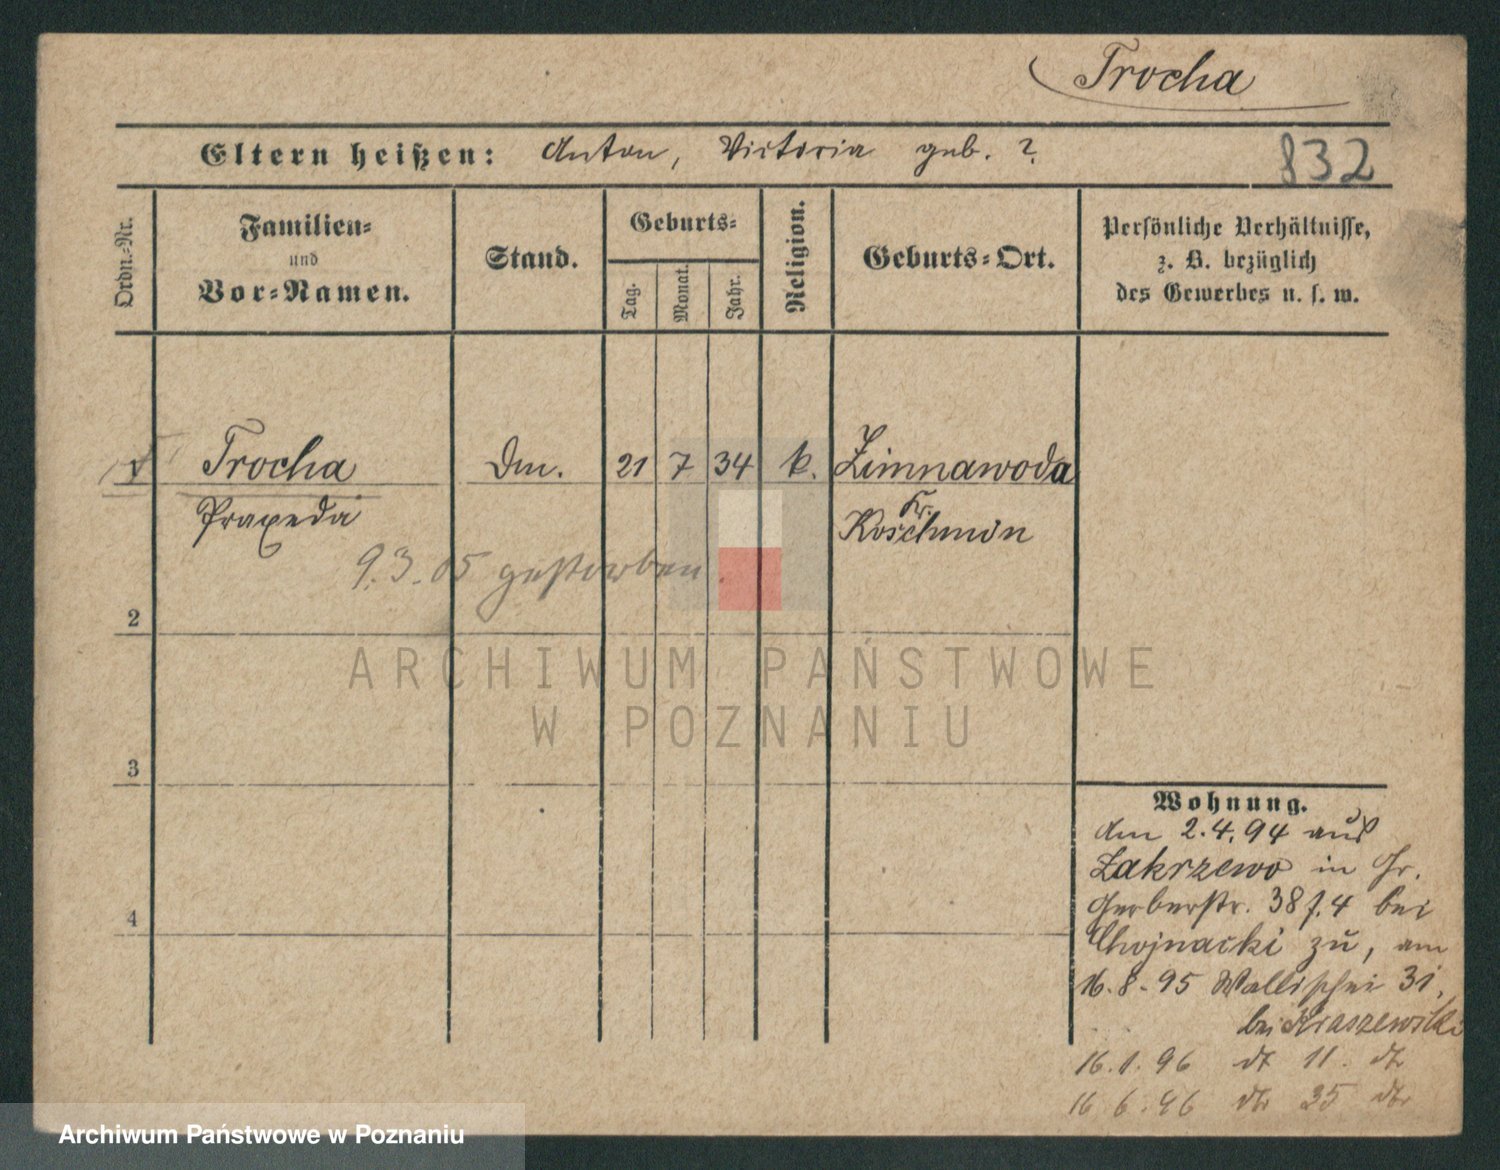 Trocha
Eltern heißen: Anton, Victoria geb. ?
832
Ordn.-Nr.
Familien-
und
Vor-Namen.
Stand.
Geburts-
Tag.
Monat.
Jahr.
Religion.
Geburts-Ort.
Persönliche Verhältnisse,
z. B. bezüglich
des Gewerbes u. s. w.
1 Trocha 21 7 34 k. Zimnawoda
Praxeda
Kr.
Koschmin
9.3.05 gestorben.
2
ARCHIWUM PAŃSTWOWE
W POZNANIU
3
4
Wohnung.
Am 2.4.94 aus
Zakrzewo in Gr.
Gerberstr. 38 f. 4 bei
Chojnacki zu, am
16.8.95 Wallischei 31,
bei Kraszewski
16.1.96 dt 11. dt
16 6.96 dto 35 dto
Archiwum Państwowe w Poznaniu